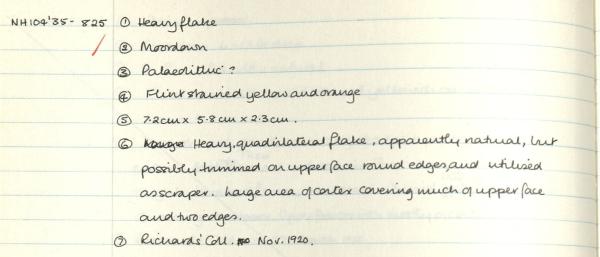 NH104'35 - 825 ① Heavy flake
② Moordown
③ Palaeolithic ?
④ Flint stained yellow and orange
⑤ 7.2cm x 5.8cm x 2.3cm.
⑥ Heavy, quadrilateral flake, apparently natural, but
possibly trimmed on upper face round edges, and utilised
as scraper. Large area of cortex covering much of upper face
and two edges.
⑦ Richards' Coll. Nov. 1920.